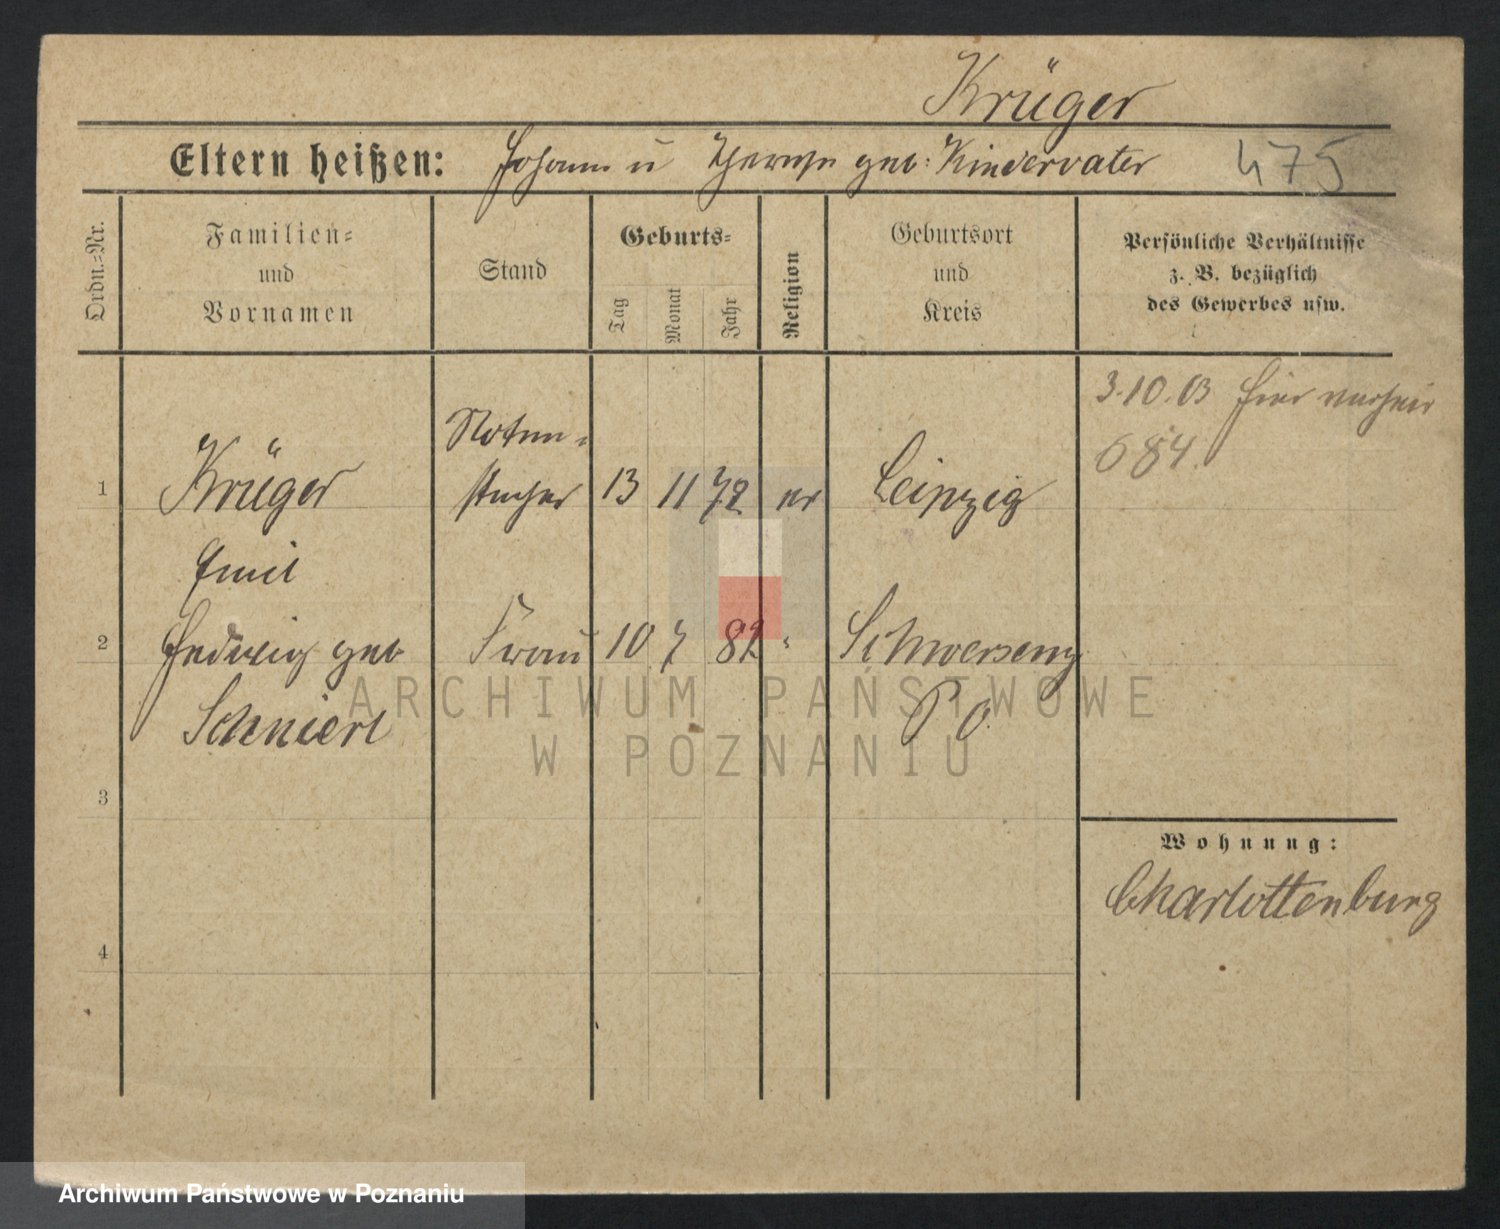 Krüger
Eltern heißen: Johann u Therese geb: Kindervater 475
Ordn.-Nr.
Familien-
und
Vornamen
Stand
Geburts-
Tag
Monat
Jahr
Religion
Geburtsort
und
Kreis
Persönliche Verhältnisse
z. B. bezüglich
des Gewerbes usw.
3.10.03 hier verheir
684.
Noten-
1 Krüger stecher 13 11 72 ev Leipzig
Emil
2 Hedwig geb Frau 10 7 82 " Schwersenz
Schnierl P O.
ARCHIWUM PAŃSTWOWE
W POZNANIU
3
Wohnung:
Charlottenburg
4
Archiwum Państwowe w Poznaniu